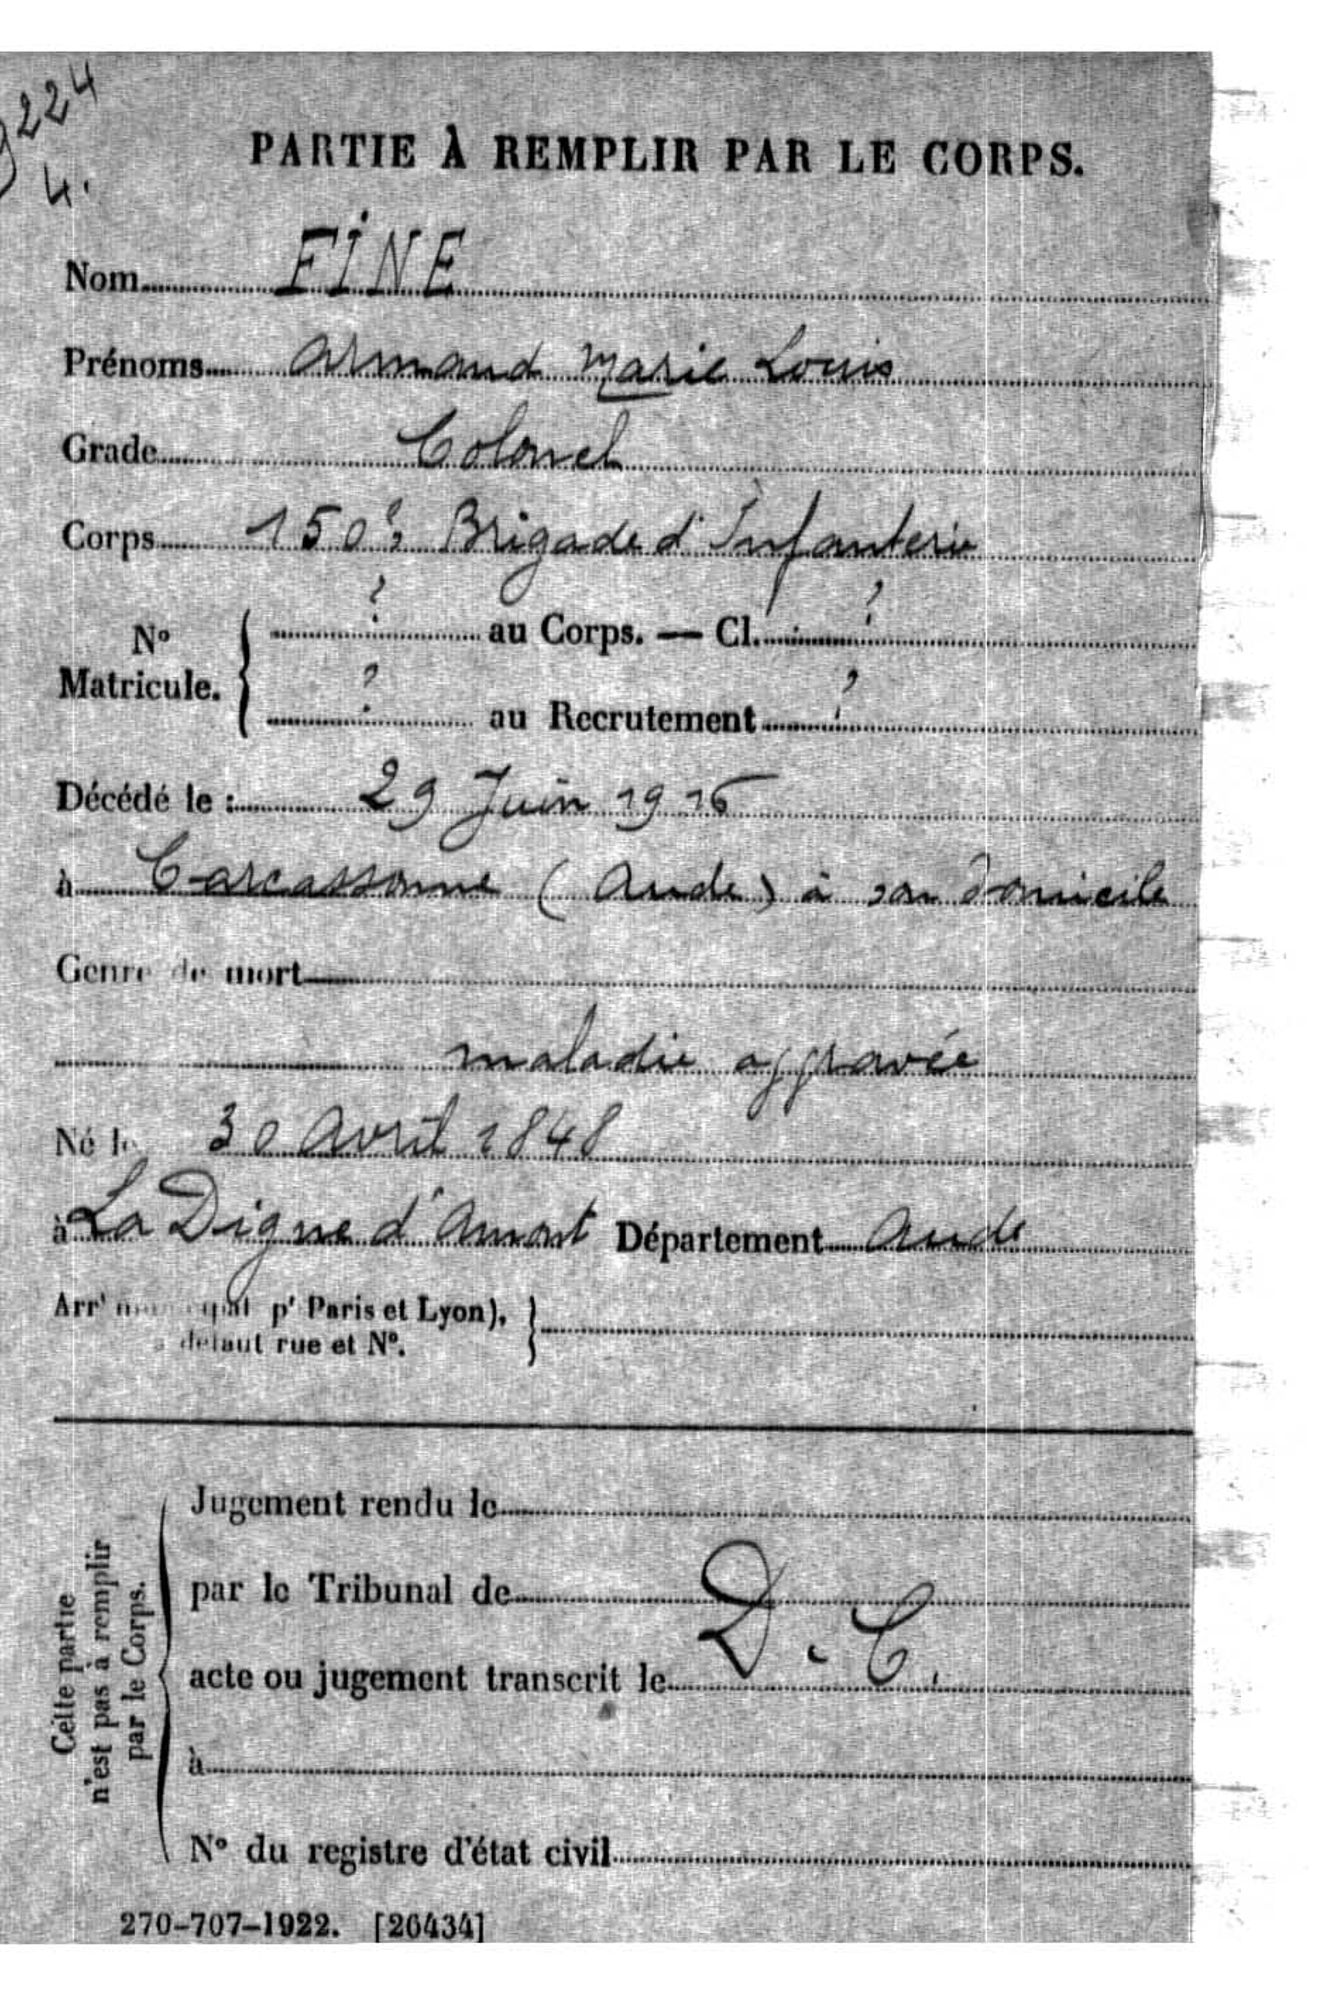 224
4.
PARTIE À REMPLIR PAR LE CORPS.
Nom FINE
Prénoms Armand Marie Louis
Grade Colonel
Corps 150e Brigade d'Infanterie
N° Matricule. { ? au Corps. — Cl. ?
? au Recrutement ?
Décédé le : 29 Juin 1916
à Carcassonne (Aude) à son domicile
Genre de mort
maladie aggravée
Né le 30 Avril 1848
à La Digne d'Amont Département Aude
Arrt municipal pr Paris et Lyon), }
à défaut rue et N°.
Cette partie
n'est pas à remplir
par le Corps.
Jugement rendu le
par le Tribunal de
D. C.
acte ou jugement transcrit le
à
N° du registre d'état civil
270-707-1922. [26434]